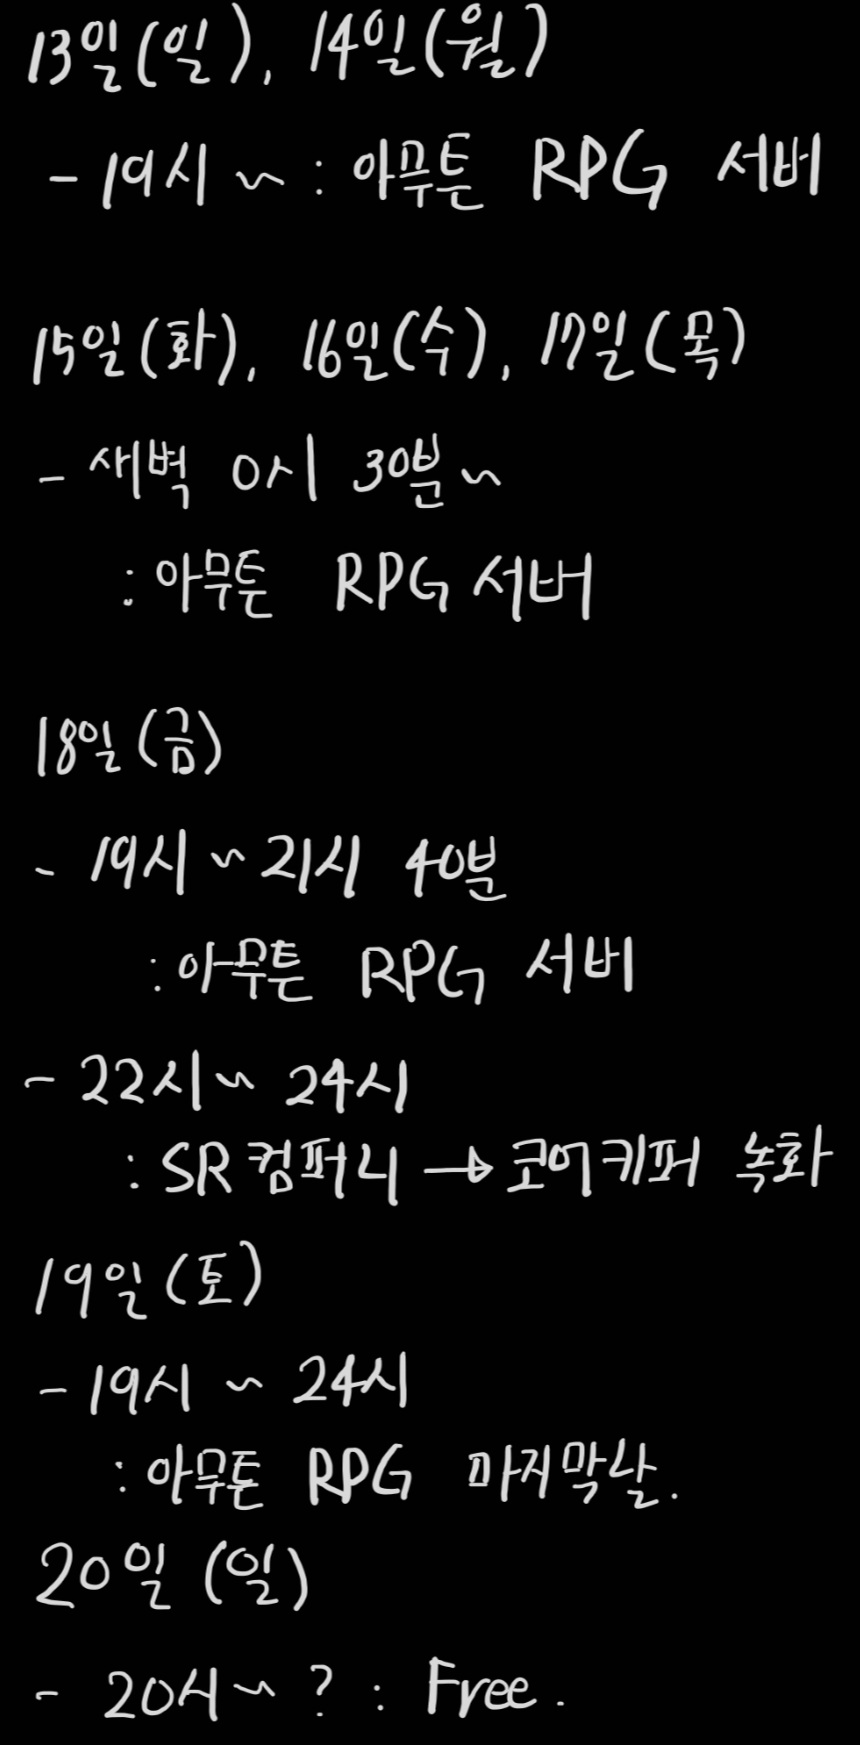 13일(일), 14일(월)
- 19시 ~ : 아무튼 RPG 서버
15일(화), 16일(수), 17일(목)
- 새벽 0시 30분 ~
: 아무튼 RPG 서버
18일(금)
- 19시 ~ 21시 40분
: 아무튼 RPG 서버
- 22시 ~ 24시
: SR컴퍼니 → 코어키퍼 녹화
19일(토)
- 19시 ~ 24시
: 아무튼 RPG 마지막날.
20일(일)
- 20시 ~ ? : Free.